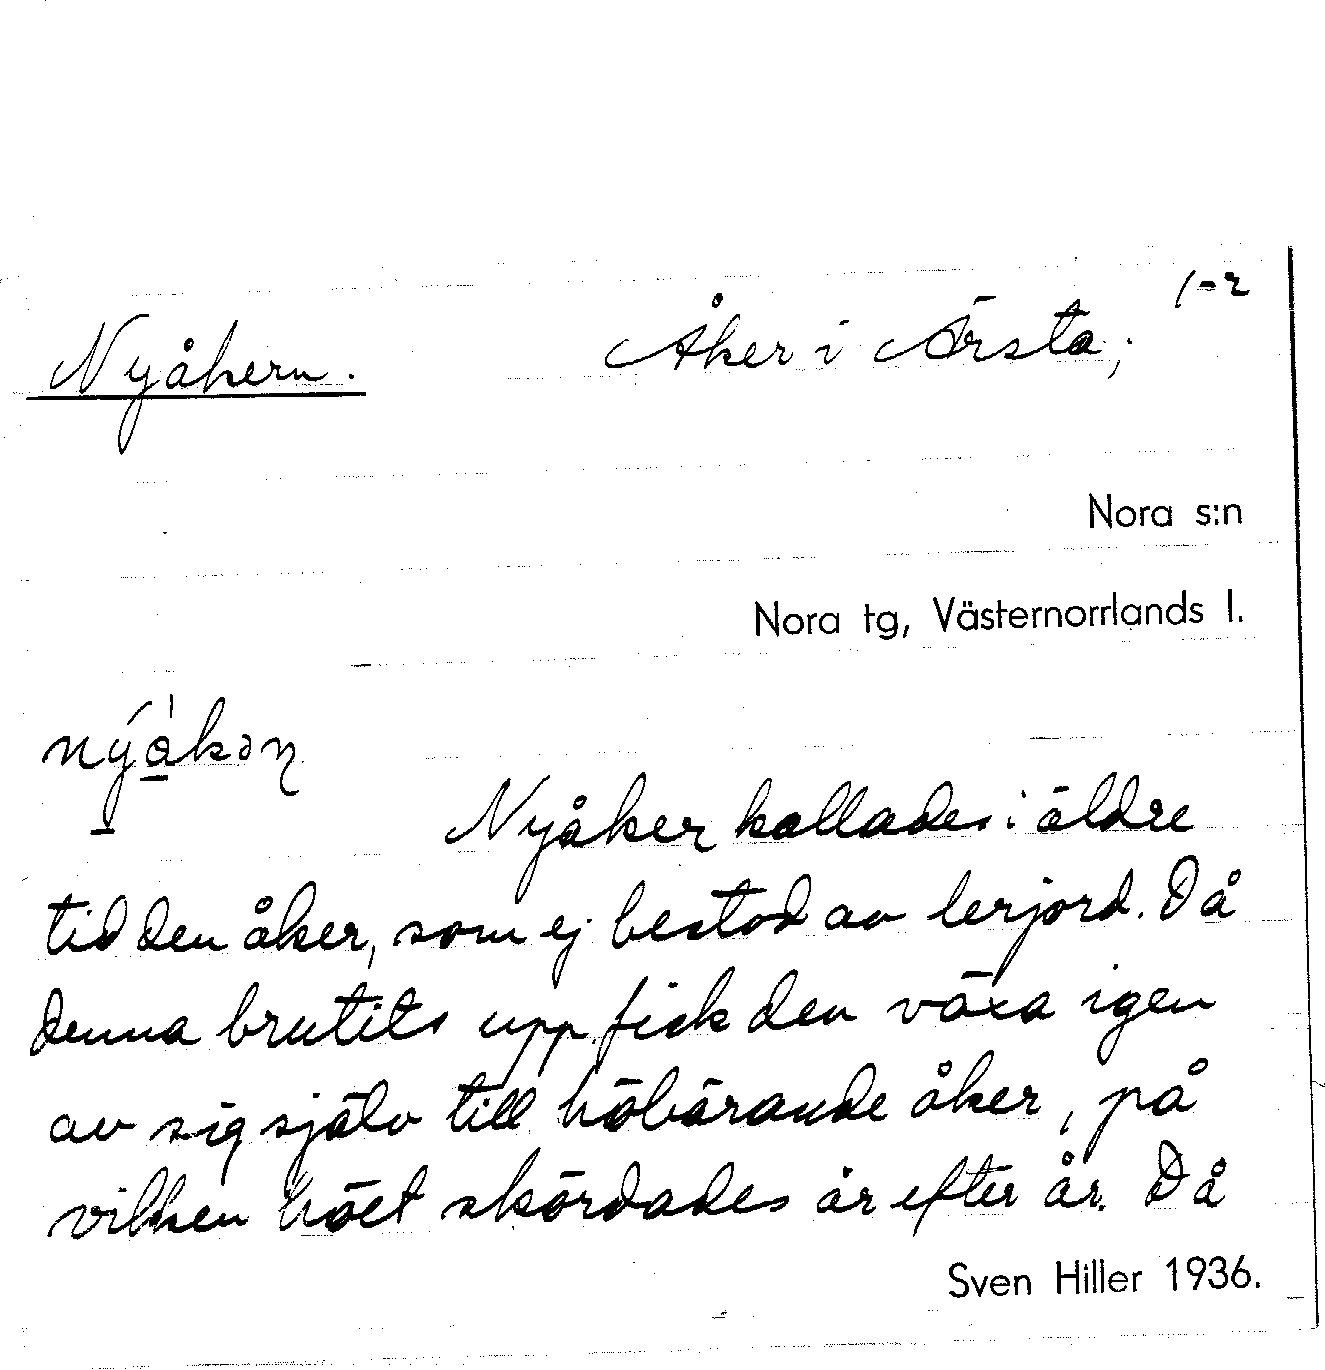 1-2
Nyåkern. Åker i Ärsta,
Nora s:n
Nora tg, Västernorrlands l.
nýàkəṇ
Nyåker kallades i äldre
tid den åker, som ej bestod av lerjord. Då
denna brutits upp fick den växa igen
av sig själv till höbärande åker, på
vilken höet skördades år efter år. Då
Sven Hiller 1936.